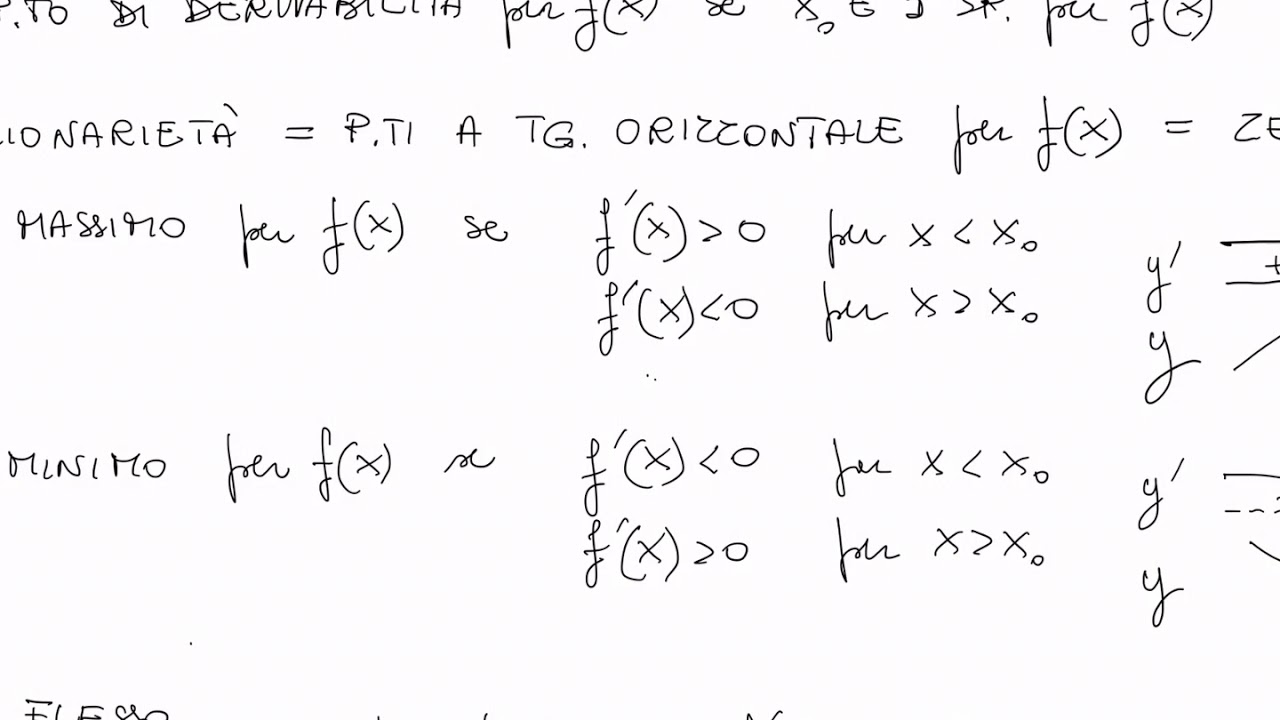 P.TO DI DERIVABILITÀ per f(x) se x₀ È I SP. per f(x)
IONARIETÀ = P.TI A TG. ORIZZONTALE per f(x) = ZE
MASSIMO per f(x) se f'(x) > 0 per x < x₀
f'(x) < 0 per x > x₀
y' +
y
MINIMO per f(x) se f'(x) < 0 per x < x₀
f'(x) > 0 per x > x₀
y'
y
FLESSO